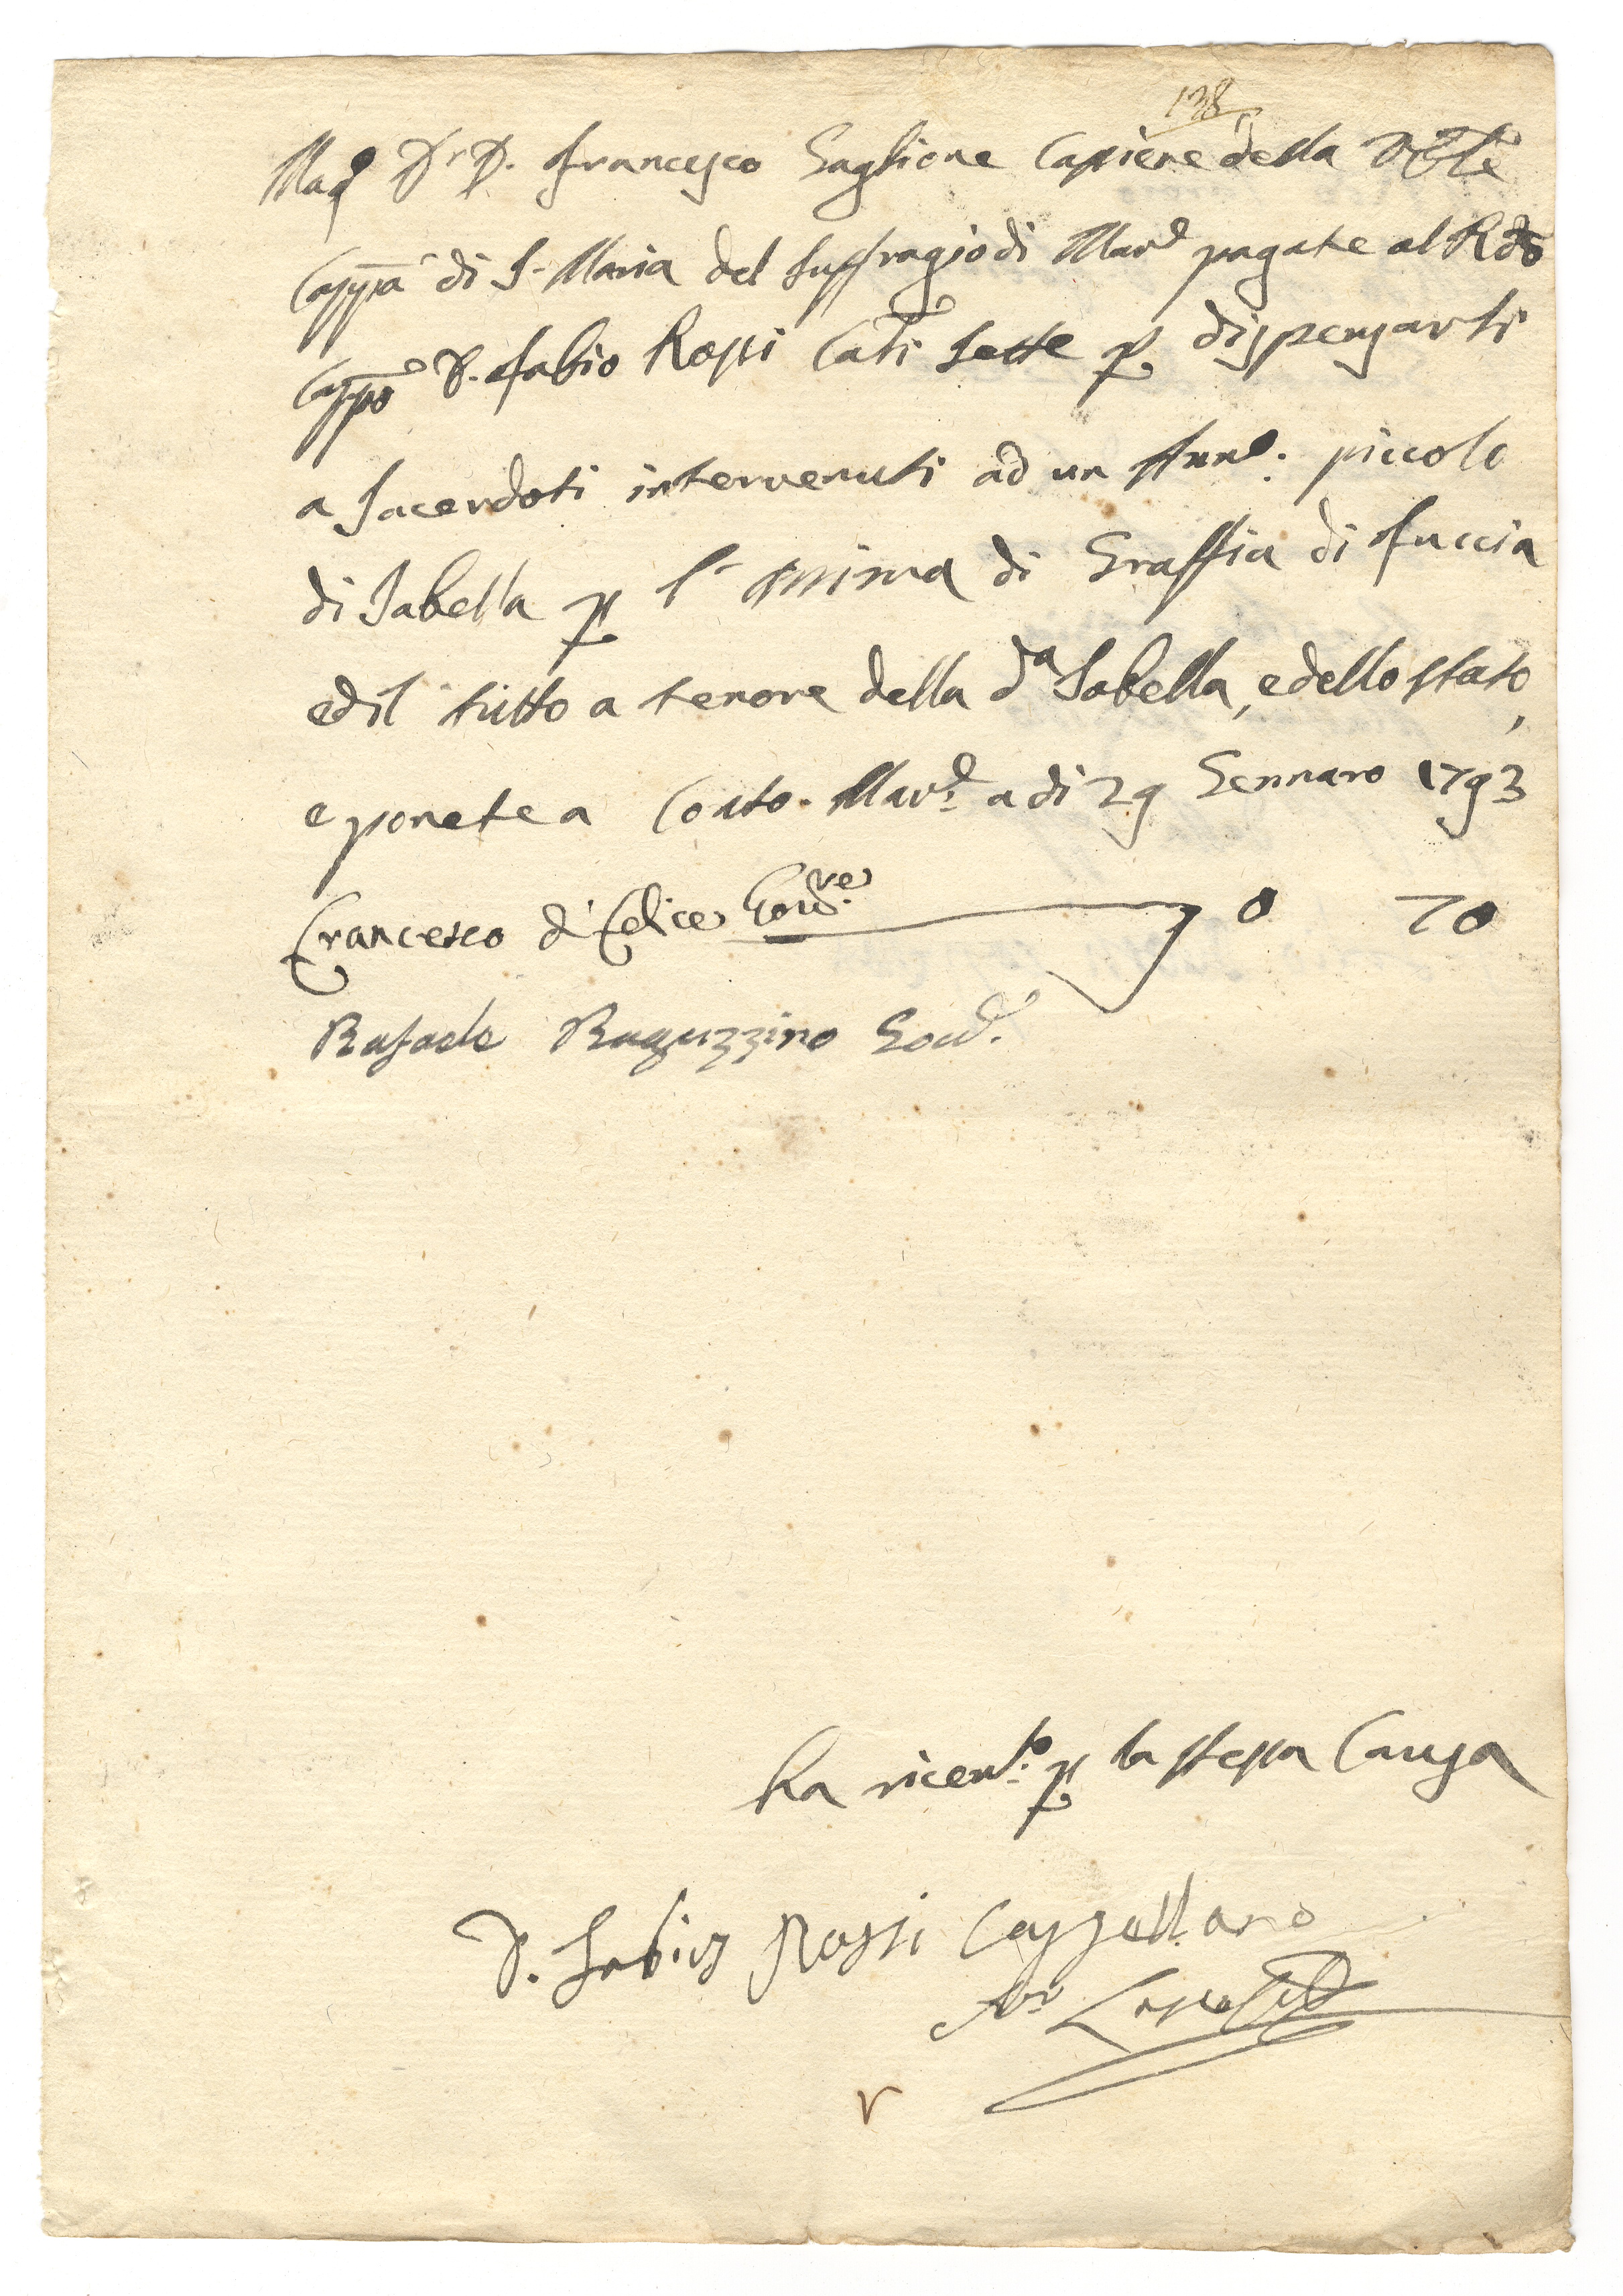 138
Mag.co Dr. D. Francesco Gaglione Cassiere della Ven.le
Capp.a di S. Maria del Suffragio di Mar.e pagate al R.do
Capp.no D. Fabio Rossi Carl.i sette p. dispenzarli
a Sacerdoti intervenuti ad un Ann.o piccolo
di Sabella p. l'Anima di Graffia di Fuccia
ed il tutto a tenore della d.a Sabella, e dello stato,
e ponete a Conto. Mar.e a di 29 Gennaro 1793
Francesco di Felice Gov.re 0 70
Rafaele Raguzzino Gov.e
Ha ricev.to p. la stessa Causa
D. Fabio Rossi Cappellano